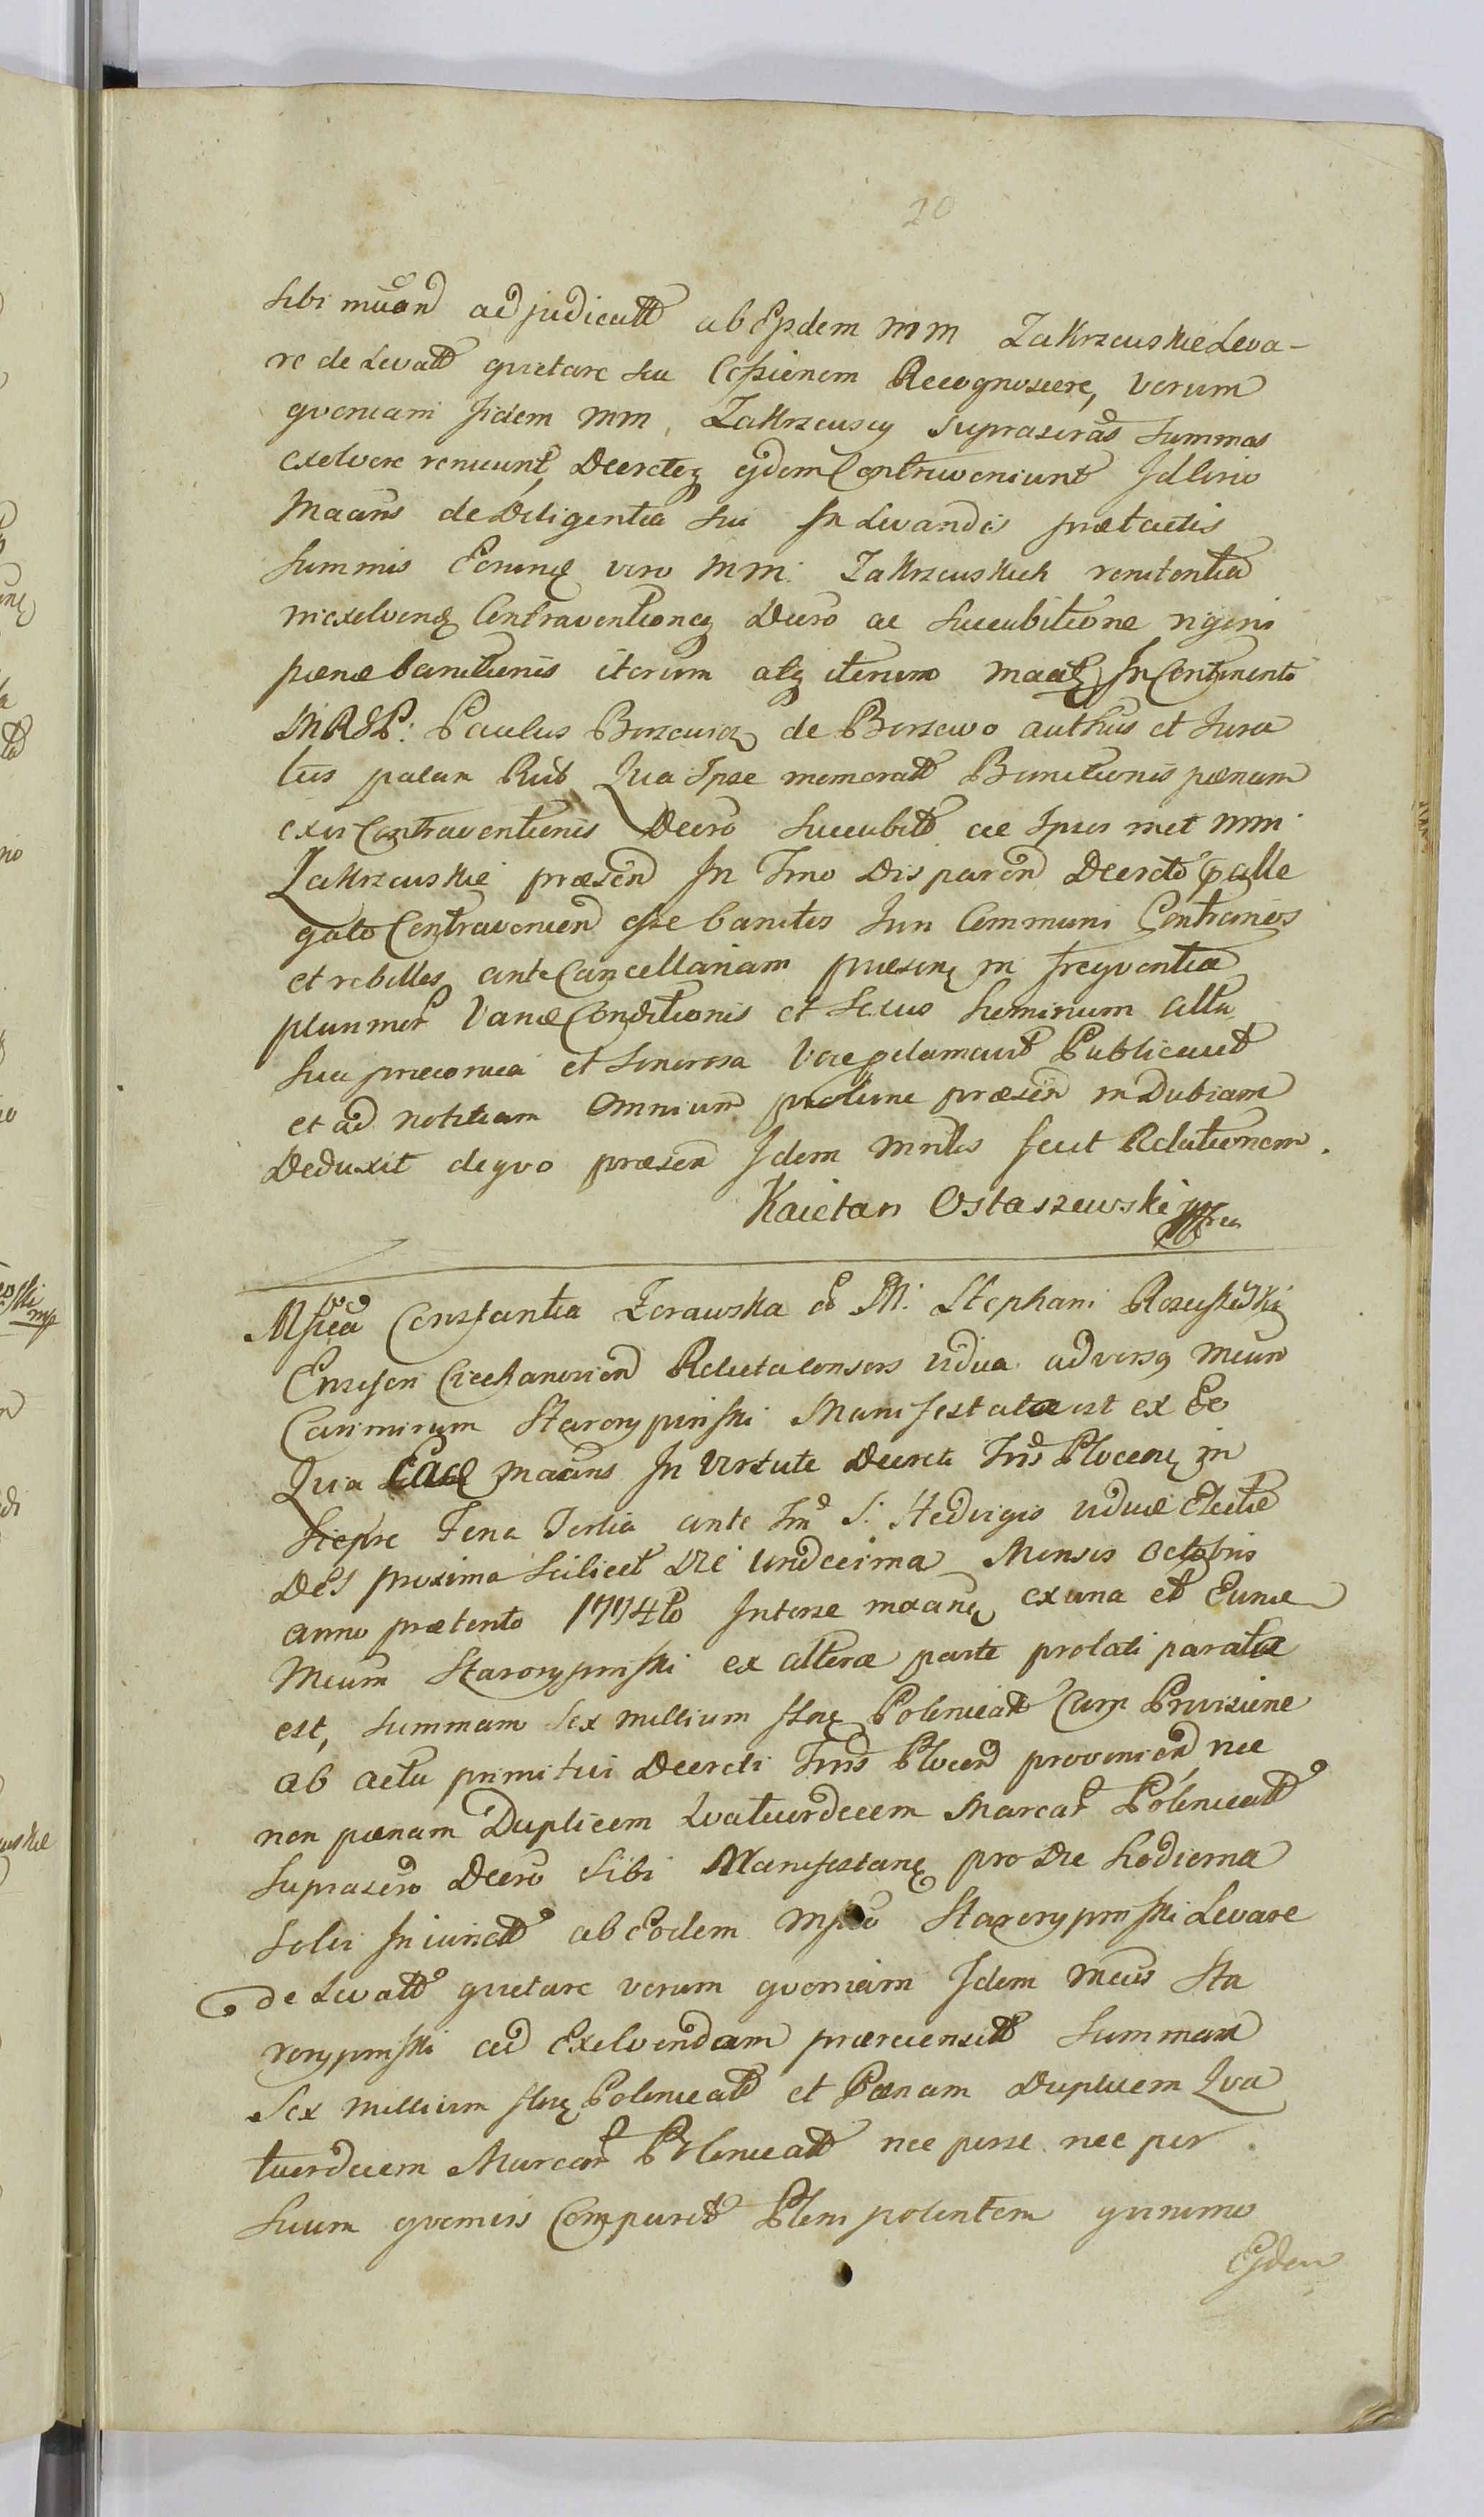 20
sibi mttand adjudicatt ab Eisdem MM Zakrzewskie Leva-
re de Levatt quietare seu Cessionem Recognoscere, verum
qvoniam Jidem MM. Zakrzewscy suprascras Summas
exolvere renuunt, Decretoq ejdem Contraveniunt Jdcirco
Maans de Diligentia sui In Levandis prætactis
Summis Eorumq vero MM: Zakrzewskich renitentia
inexolvenq Contraventioneq Decro ac Succubitione rigoris
pœnæ banitionis iterum atq iterum maatq In Continenti
MRGP: Paulus Borzewicz de Borzewo authus et Jura
tus palam Rcdt Qvia Ipse memoratt Banitionis pœnam
ex vi Contraventionis Decro Succubitt ac Ipsos met MM
Zakrzewskie præsen In Tmo disparen Decreto
gato Contravenien esse banitos Jur Communi Contrarios
et rebelles ante Cancellariam præsen in freqventia
plurimor Variæ Conditionis et Sexus hominum alta
sua præconica et Sonorosa Voce pclamavit Publicavit
et ad notitiam Omnium protunc præsen in Dubiam
Deduxit deqvo præsen Jdem Mrilis fecit Relationem.
Kaietan Ostaszewski
Mfica Constantia Zorawska M. Stephani
Ensiferi Ciechanovien Relicta consors vidua adversq Mcum
Casimirum Starorypinski Manifestata est ex Eo
Qvia maans In Virtute Decreti Tris Plocen in
Sierpc Feria Tertia ante fm S. Hedvigis viduæ Electæ
Dei proxima Scilicet Die Undecima Mensis Octobris
anno prætento 1774to Interse maanq ex una et Eunde
Mcum Starorypinski ex altera parte prolati parata
est, Summam Sex millium flor Polonicatt Cum Provisione
ab actu primitivi Decreti Tris Plocen provenien, nec
non pœnam Duplicem Qvatuordecem Marcar Polonicatt
Suprascro Decro sibi Manifestanq pro Die hodierna
Solvi Iniunctt ab Eodem Mfico Starorypinski Levare
de Levatt quietare verum qvoniam Jdem Mcus Sta
rorypinski ad Exolvendam præcensitt Summam
Sex millium flor Polonicatt et Pœnam Duplicem Qva
tuordecem Marcar Polonicatt nec perse nec per
Suum qvemvis Comparit Plenipotentem quinimo
Ejdem